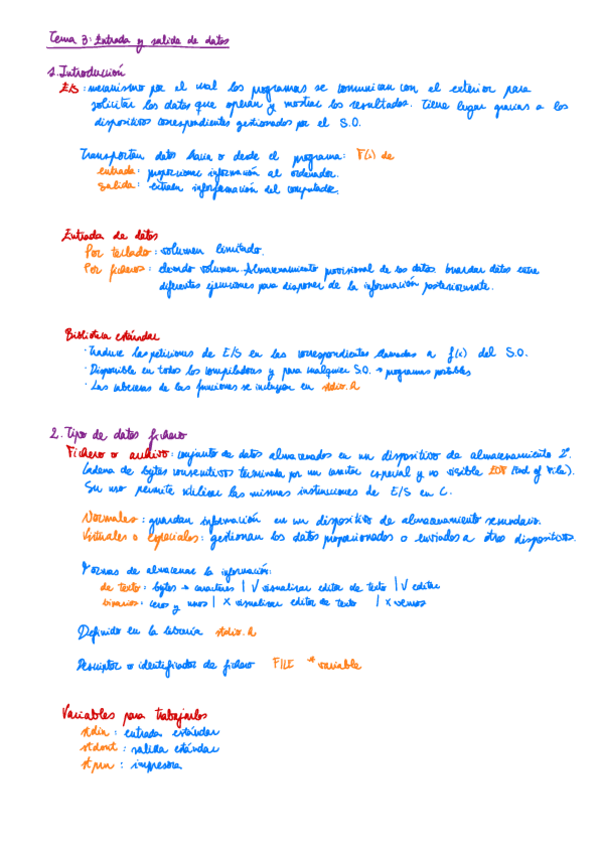 Tema 3: Entrada y salida de datos
1. Introducción
E/S: mecanismo por el cual los programas se comunican con el exterior para
solicitar los datos que operan y mostrar los resultados. Tiene lugar gracias a los
dispositivos correspondientes gestionados por el S.O.
Transportan datos hacia o desde el programa: F(s) de
entrada: proporcionar información al ordenador.
salida: extraen información del computador.
Entrada de datos
Por teclado: volumen limitado.
Por ficheros: elevado volumen. Almacenamiento provisional de los datos. Guardar datos entre
diferentes ejecuciones para disponer de la información posteriormente.
Biblioteca estándar
· Traduce las peticiones de E/S en las correspondientes llamadas a f(s) del S.O.
· Disponible en todos los compiladores y para cualquier S.O. → programas portables
· Las cabeceras de las funciones se incluyen en stdio.h
2. Tipo de datos fichero
Fichero o archivo: conjunto de datos almacenados en un dispositivo de almacenamiento 2º.
Cadena de bytes consecutivos terminada por un carácter especial y no visible EOF (End of File).
Su uso permite utilizar las mismas instrucciones de E/S en C.
Normales: guardan información en un dispositivo de almacenamiento secundario.
Virtuales o especiales: gestionan los datos proporcionados o enviados a otros dispositivos.
Formas de almacenar la información:
de texto: bytes → caracteres | V visualizar editor de texto | V editar
binarios: ceros y unos | X visualizar editor de texto | X vemos
Definido en la librería stdio.h
Descriptor o identificador de fichero FILE * variable
Variables para trabajarlos
stdin: entrada estándar
stdout: salida estándar
stprn: impresora